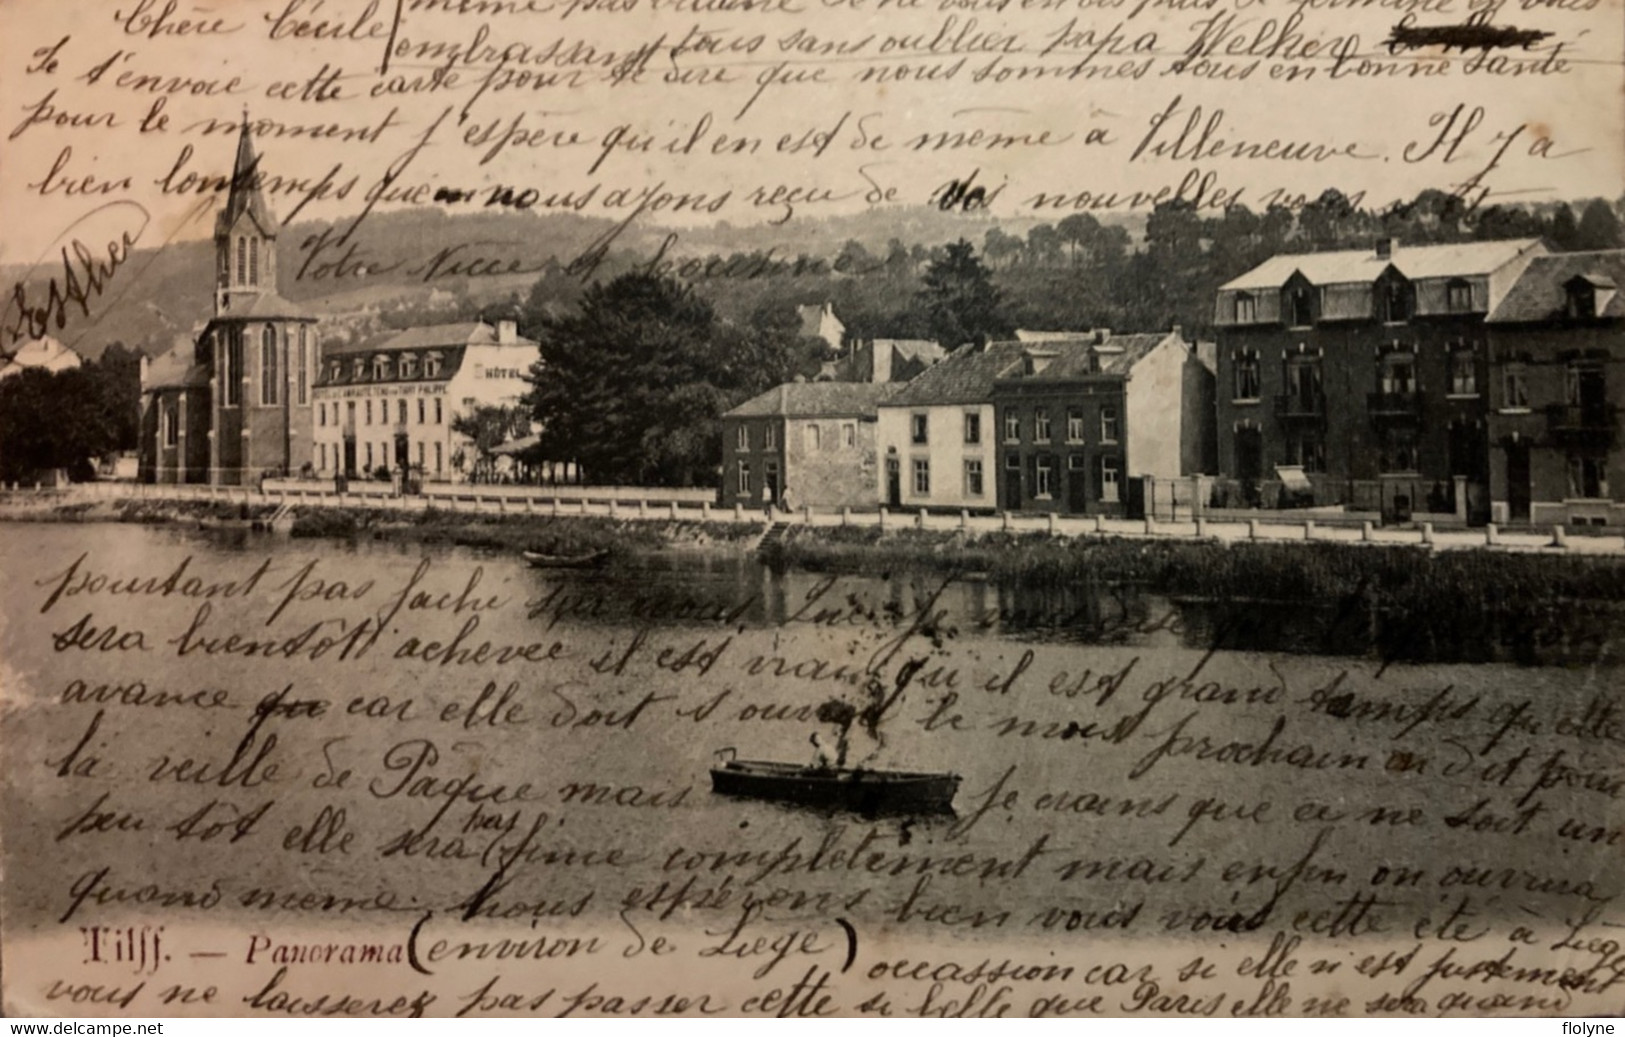 même pas                 je ne vous en dis plus je termine en vous
Chère Cécile
embrassant tous sans oublier papa Welker
Je t'envoie cette carte pour te dire que nous sommes tous en bonne santé
pour le moment J'espère qu'il en est de même à Villeneuve. Il y a
bien lontemps que nous ayons reçu de vos nouvelles vous
Votre Nièce et
Esther
HÔTEL
pourtant pas faché sur nous. Je vous dire que
sera bientôt achevée il est vrai qu'il est grand temps qu'elle
avance car elle doit s'ouvrir le mois prochain on dit pour
la veille de Pâque mais Je crains que ce ne soit un
peu tôt elle sera pas finie complètement mais enfin on ouvrira
quand même. Nous espérons bien vous voir cette été à Liège
Tilff. — Panorama (environ de Liège)
occassion car si elle n'est justement
vous ne laisserez pas passer cette si belle que Paris elle ne sera quand
flolyne